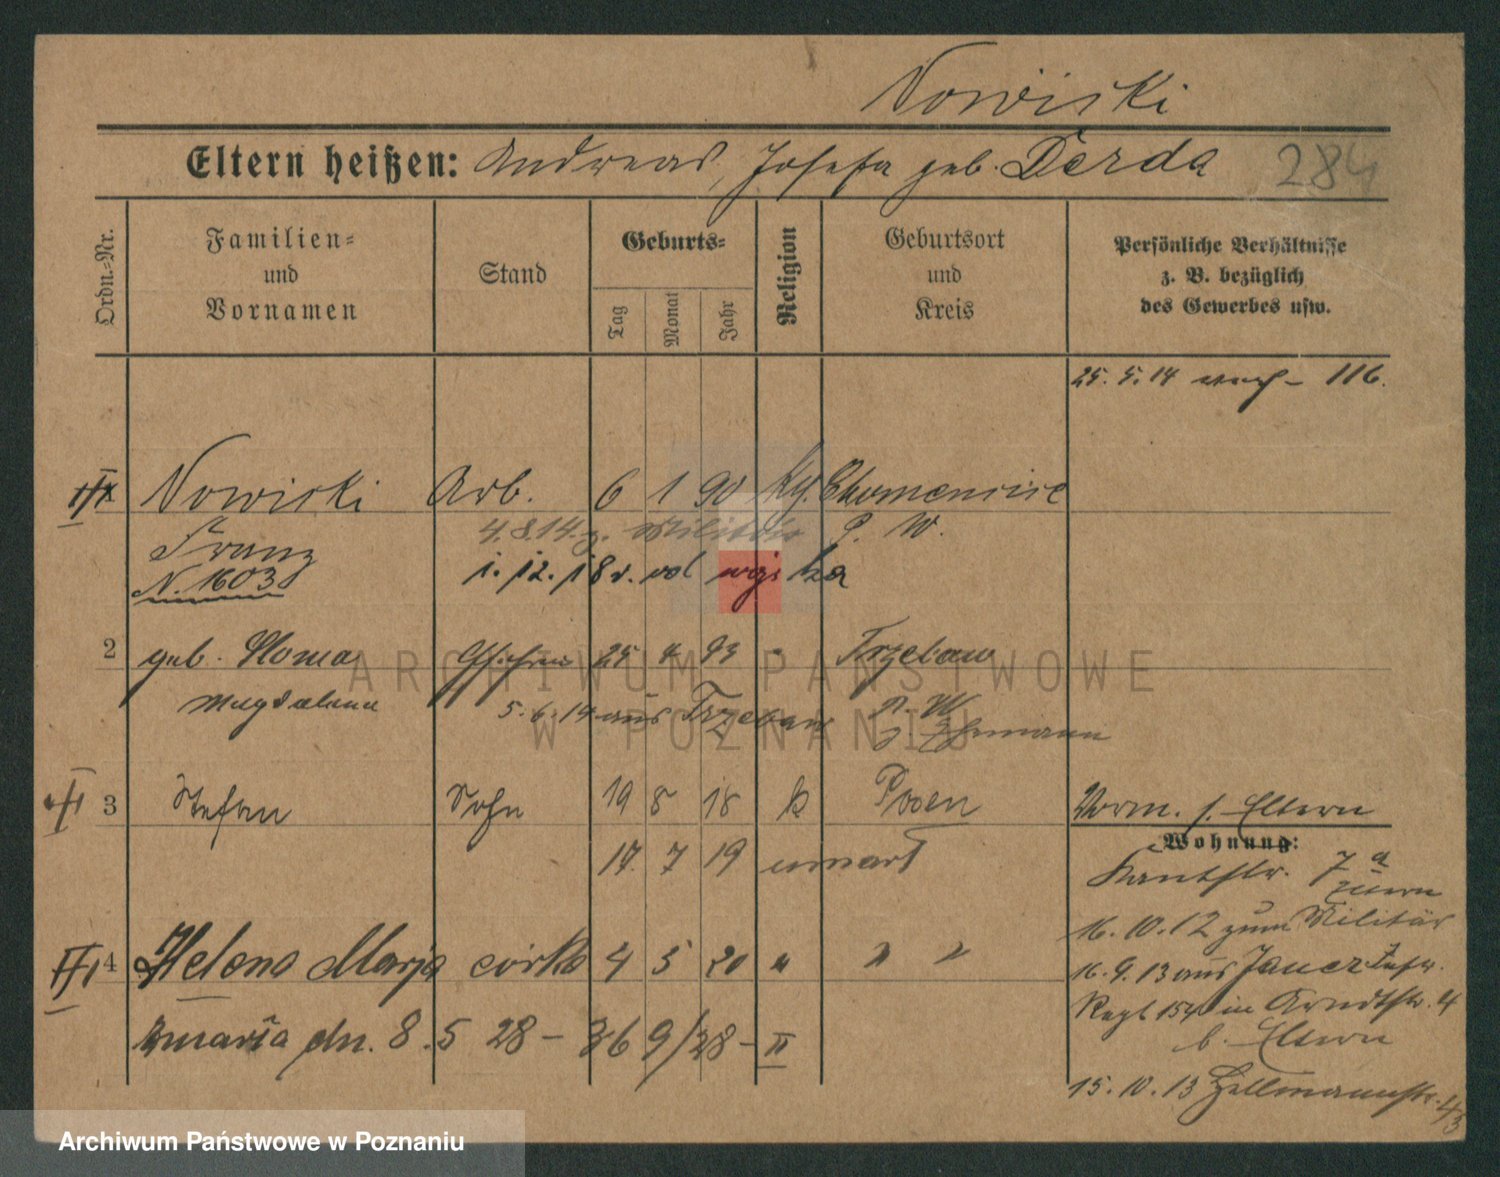 Nowiski
Eltern heißen: Andreas, Josefa geb. Derda 284
Ordn.=Nr.
Familien= und Vornamen
Stand
Geburts=
Tag Monat Jahr
Religion
Geburtsort und Kreis
Persönliche Verhältnisse
z. B. bezüglich
des Gewerbes usw.
25. 5. 14 116.
Nowiski Arb. 6 1 90 Kth.
Franz 4. 8. 14. z. Militär P. W.
N. 1603 1. 12. 18 v.
2 geb. Sloma 25 4 93 " Trzebaw
Magdalena 5. 6. 14 aus Trzebaw P. W.
3 Stefan Sohn 19 8 18 k Posen Worm. s. Eltern
17. 7 19 umarł
Wohnung:
Kantstr. 7a
Eltern
16. 10. 12 zum Militär
4 Helena Marja córka 4 5 20 " " "
16. 9. 13 aus Jauer Inf.
Regt 154 in Arndtstr. 4
b. Eltern
zmarła dn. 8. 5 28 – 36 9/28 – II
15. 10. 13
ARCHIWUM PAŃSTWOWE
W POZNANIU
Archiwum Państwowe w Poznaniu